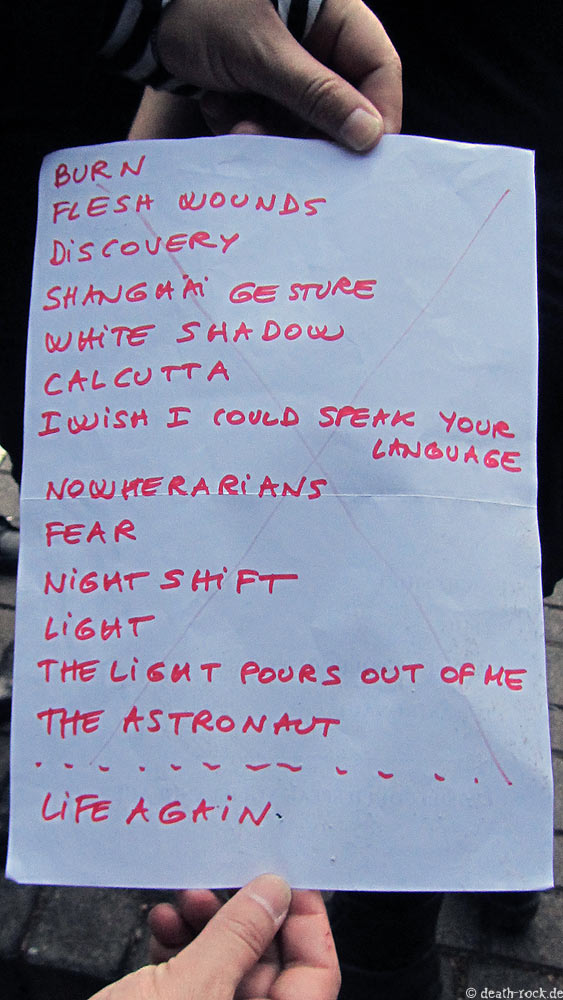 BURN
FLESH WOUNDS
DiSCOVERY
SHANGHAi GESTURE
WHiTE SHADOW
CALCUTTA
I WiSH I COULD SPEAK YOUR
LANGUAGE
NOWHERARiANS
FEAR
NiGHT SHiFT
LiGHT
THE LiGHT POURS OUT OF ME
THE ASTRONAUT
LiFE AGAiN.
© death-rock.de